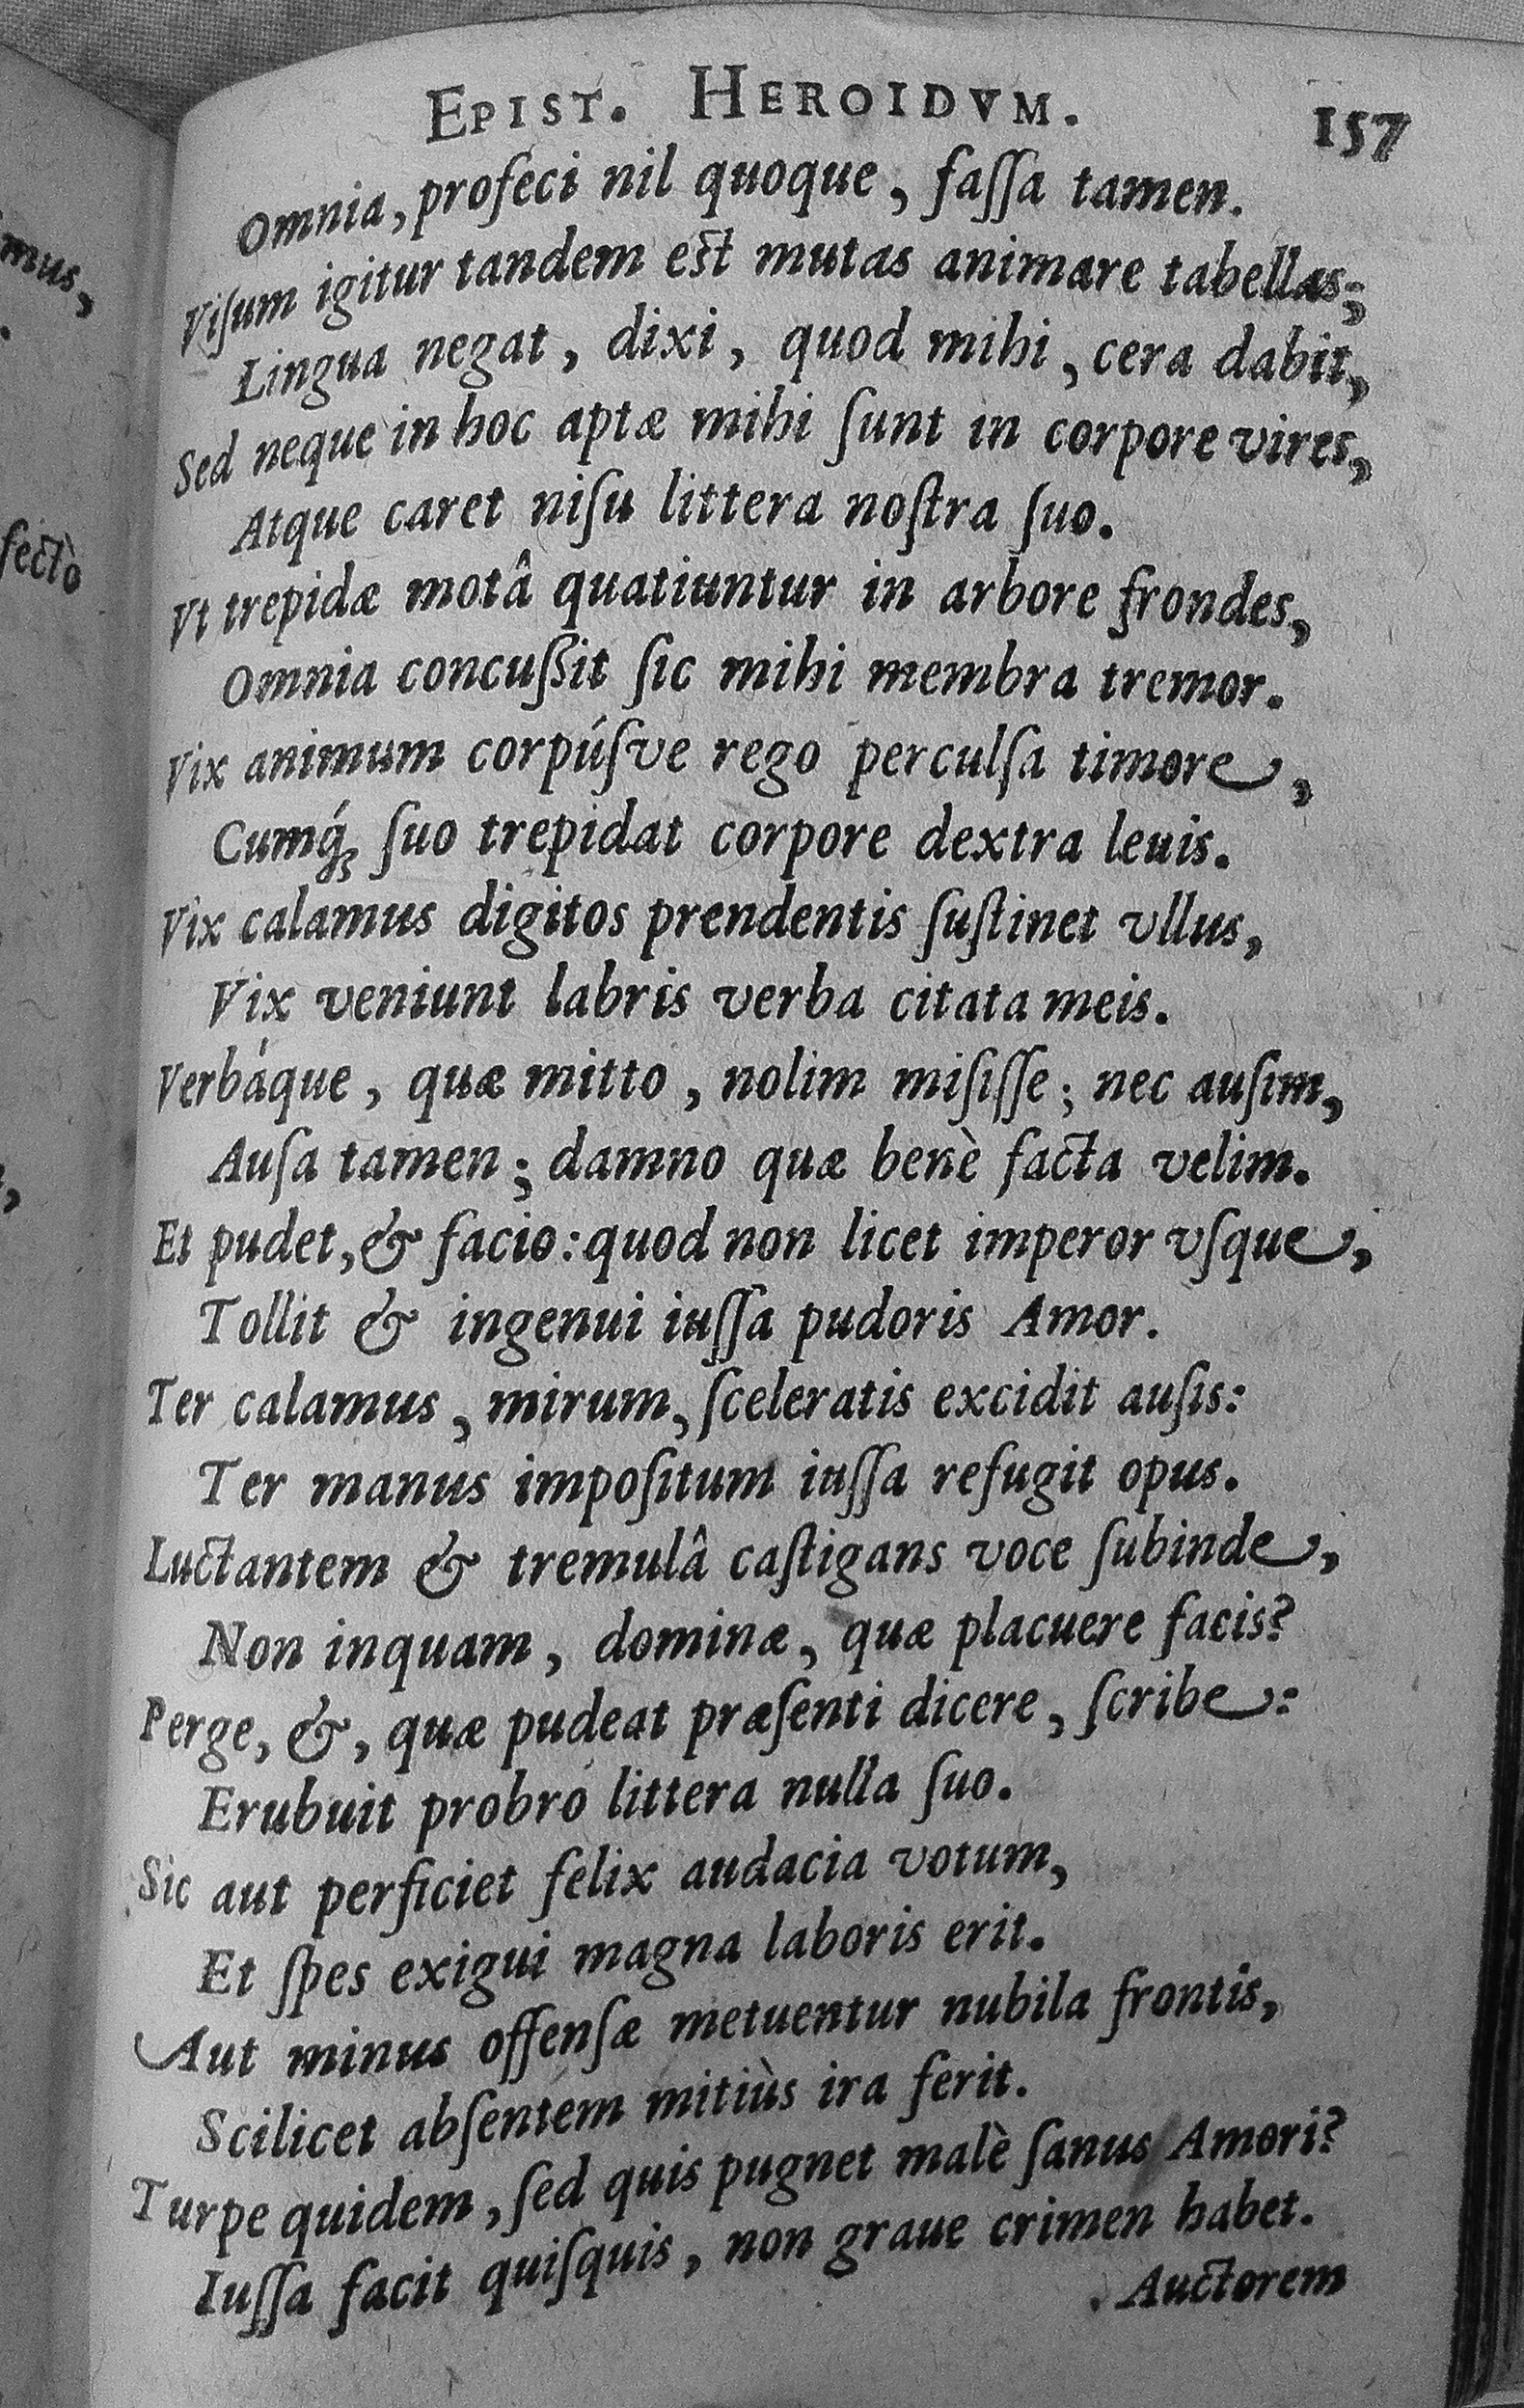 EPIST. HEROIDVM. 157
Omnia, profeci nil quoque, faſſa tamen.
Viſum igitur tandem est mutas animare tabellas;
Lingua negat, dixi, quod mihi, cera dabit,
Sed neque in hoc aptæ mihi ſunt in corpore vires,
Atque caret niſu littera noſtra ſuo.
Vt trepidæ motâ quatiuntur in arbore frondes,
Omnia concuſsit ſic mihi membra tremor.
Vix animum corpúſve rego perculſa timore,
Cumq́ꝫ ſuo trepidat corpore dextra leuis.
Vix calamus digitos prendentis ſuſtinet vllus,
Vix veniunt labris verba citata meis.
Verbáque, quæ mitto, nolim miſiſſe; nec auſim,
Auſa tamen; damno quæ benè facta velim.
Et pudet, & facio: quod non licet imperor vſque,
Tollit & ingenui iuſſa pudoris Amor.
Ter calamus, mirum, ſceleratis excidit auſis:
Ter manus impoſitum iuſſa refugit opus.
Luctantem & tremulâ caſtigans voce ſubinde,
Non inquam, dominæ, quæ placuere facis?
Perge, &, quæ pudeat præſenti dicere, ſcribe:
Erubuit probro littera nulla ſuo.
Sic aut perficiet felix audacia votum,
Et ſpes exigui magna laboris erit.
Aut minus offenſæ metuentur nubila frontis,
Scilicet abſentem mitiùs ira ferit.
Turpe quidem, ſed quis pugnet malè ſanus Amori?
Iuſſa facit quiſquis, non graue crimen habet.
Auctorem
mus,
fectò